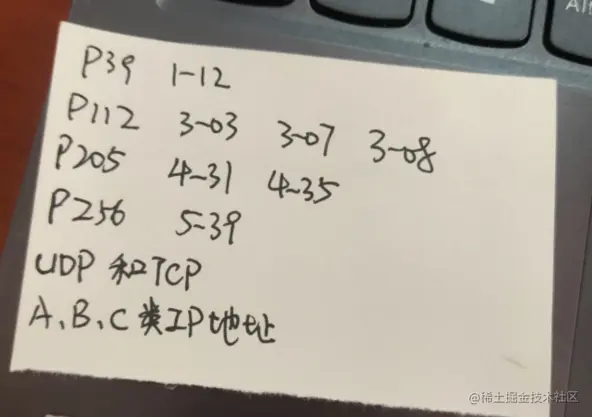 P39 1-12
P112 3-03 3-07 3-08
P205 4-31 4-35
P256 5-39
UDP 和TCP
A、B、C 类IP地址
@稀土掘金技术社区